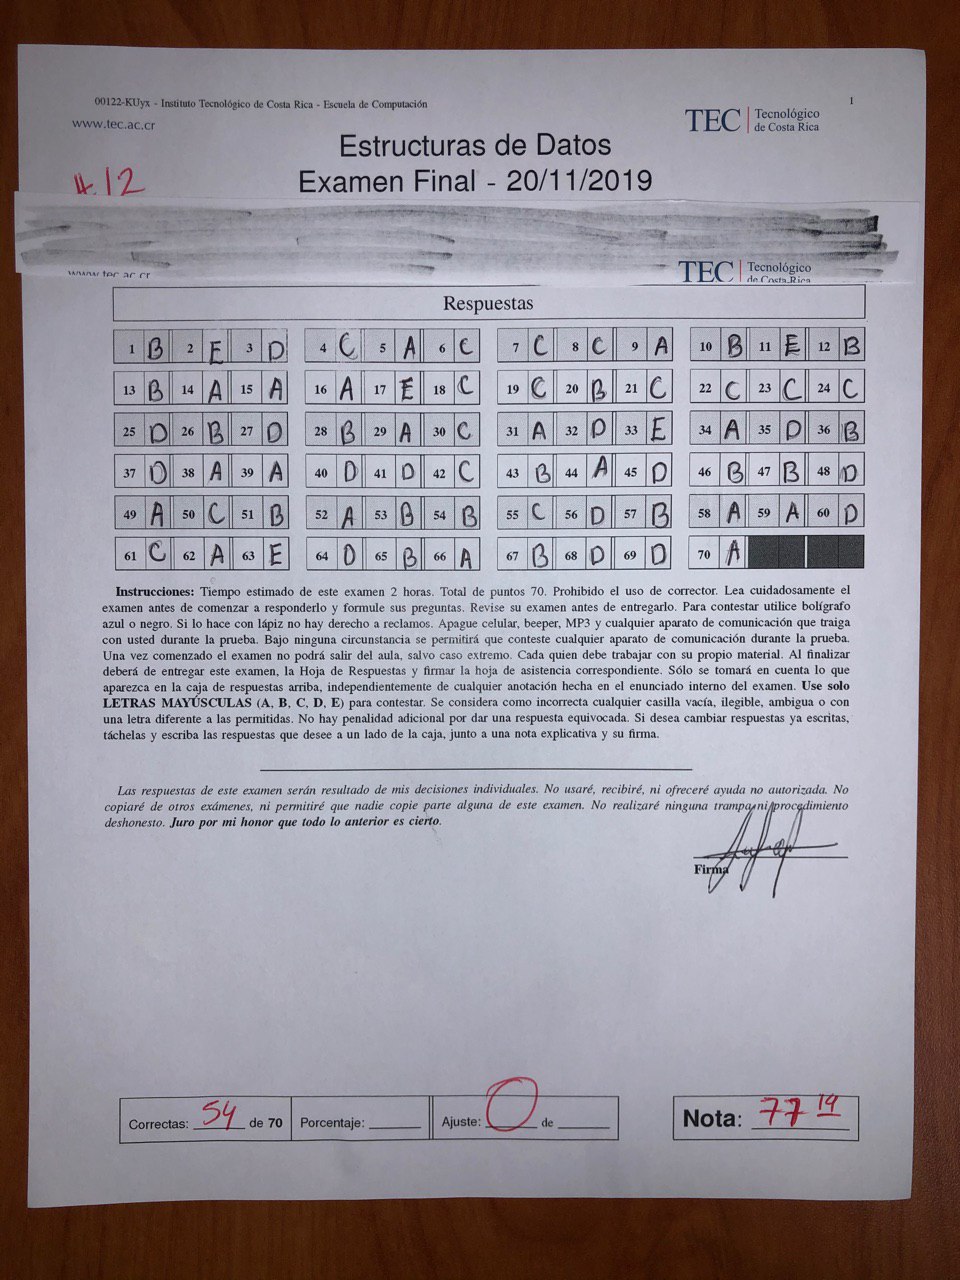 00122-KUyx - Instituto Tecnológico de Costa Rica - Escuela de Computación
1
www.tec.ac.cr
TEC | Tecnológico de Costa Rica
Estructuras de Datos
Examen Final - 20/11/2019
4.12
www.tec.ac.cr
TEC | Tecnológico de Costa Rica
Respuestas
1 B 2 E 3 D 4 C 5 A 6 C 7 C 8 C 9 A 10 B 11 E 12 B
13 B 14 A 15 A 16 A 17 E 18 C 19 C 20 B 21 C 22 C 23 C 24 C
25 D 26 B 27 D 28 B 29 A 30 C 31 A 32 D 33 E 34 A 35 D 36 B
37 D 38 A 39 A 40 D 41 D 42 C 43 B 44 A 45 D 46 B 47 B 48 D
49 A 50 C 51 B 52 A 53 B 54 B 55 C 56 D 57 B 58 A 59 A 60 D
61 C 62 A 63 E 64 D 65 B 66 A 67 B 68 D 69 D 70 A
Instrucciones: Tiempo estimado de este examen 2 horas. Total de puntos 70. Prohibido el uso de corrector. Lea cuidadosamente el
examen antes de comenzar a responderlo y formule sus preguntas. Revise su examen antes de entregarlo. Para contestar utilice bolígrafo
azul o negro. Si lo hace con lápiz no hay derecho a reclamos. Apague celular, beeper, MP3 y cualquier aparato de comunicación que traiga
con usted durante la prueba. Bajo ninguna circunstancia se permitirá que conteste cualquier aparato de comunicación durante la prueba.
Una vez comenzado el examen no podrá salir del aula, salvo caso extremo. Cada quien debe trabajar con su propio material. Al finalizar
deberá de entregar este examen, la Hoja de Respuestas y firmar la hoja de asistencia correspondiente. Sólo se tomará en cuenta lo que
aparezca en la caja de respuestas arriba, independientemente de cualquier anotación hecha en el enunciado interno del examen. Use solo
LETRAS MAYÚSCULAS (A, B, C, D, E) para contestar. Se considera como incorrecta cualquier casilla vacía, ilegible, ambigua o con
una letra diferente a las permitidas. No hay penalidad adicional por dar una respuesta equivocada. Si desea cambiar respuestas ya escritas,
táchelas y escriba las respuestas que desee a un lado de la caja, junto a una nota explicativa y su firma.
Las respuestas de este examen serán resultado de mis decisiones individuales. No usaré, recibiré, ni ofreceré ayuda no autorizada. No
copiaré de otros exámenes, ni permitiré que nadie copie parte alguna de este examen. No realizaré ninguna trampa ni procedimiento
deshonesto. Juro por mi honor que todo lo anterior es cierto.
Firma
Correctas: 54 de 70 Porcentaje: Ajuste: 0 de Nota: 77 14